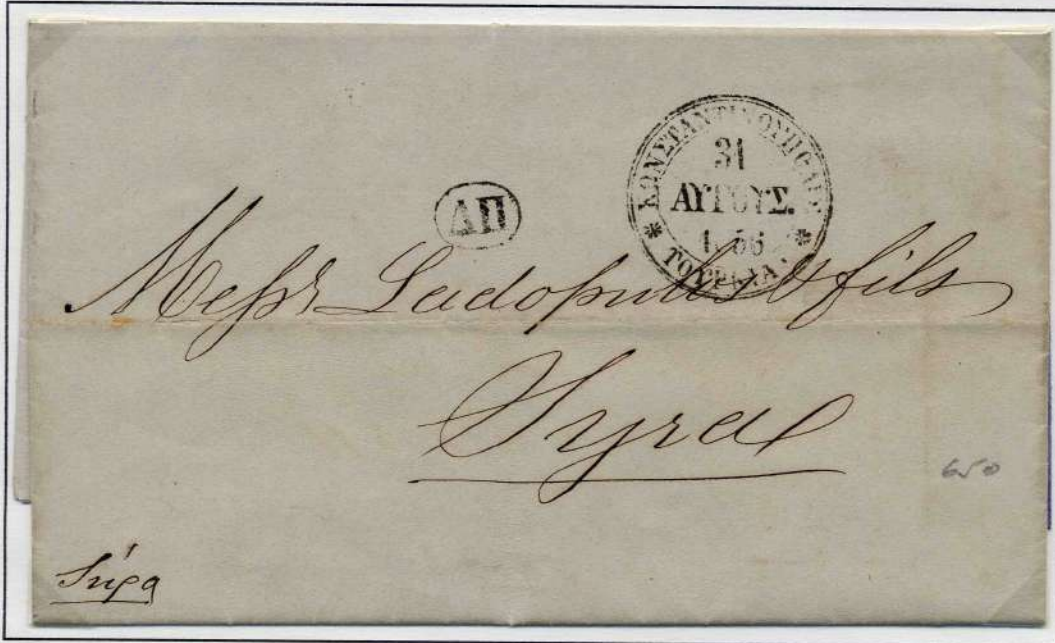 ΚΩΝΣΤΑΝΤΙΝΟΥΠΟΛΙΣ
31
ΑΥΓΟΥΣ.
1 56
* ΤΟΥΡΚΙΑ. *
ΔΠ
Messrs Ladopulos & fils
Syra
650
Σύρα